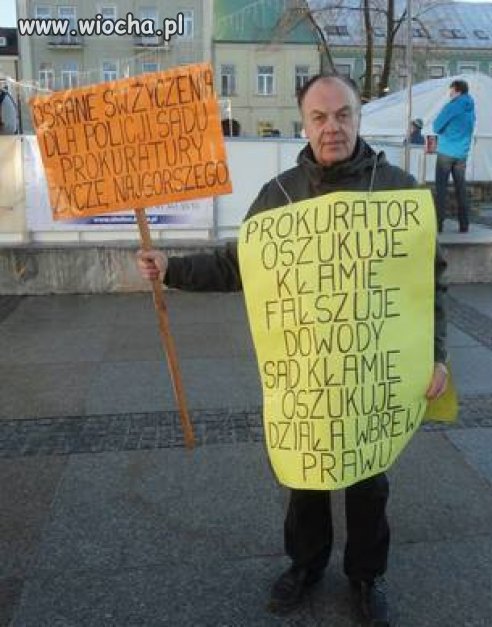 www.wiocha.pl
OSRANE ŚWZYCZENIA
DLA POLICJI SĄDU
PROKURATURY
ŻYCZĘ NAJGORSZEGO
PROKURATOR
OSZUKUJE
KŁAMIE
FAŁSZUJE
DOWODY
SĄD KŁAMIE
OSZUKUJE
DZIAŁA WBREW
PRAWU